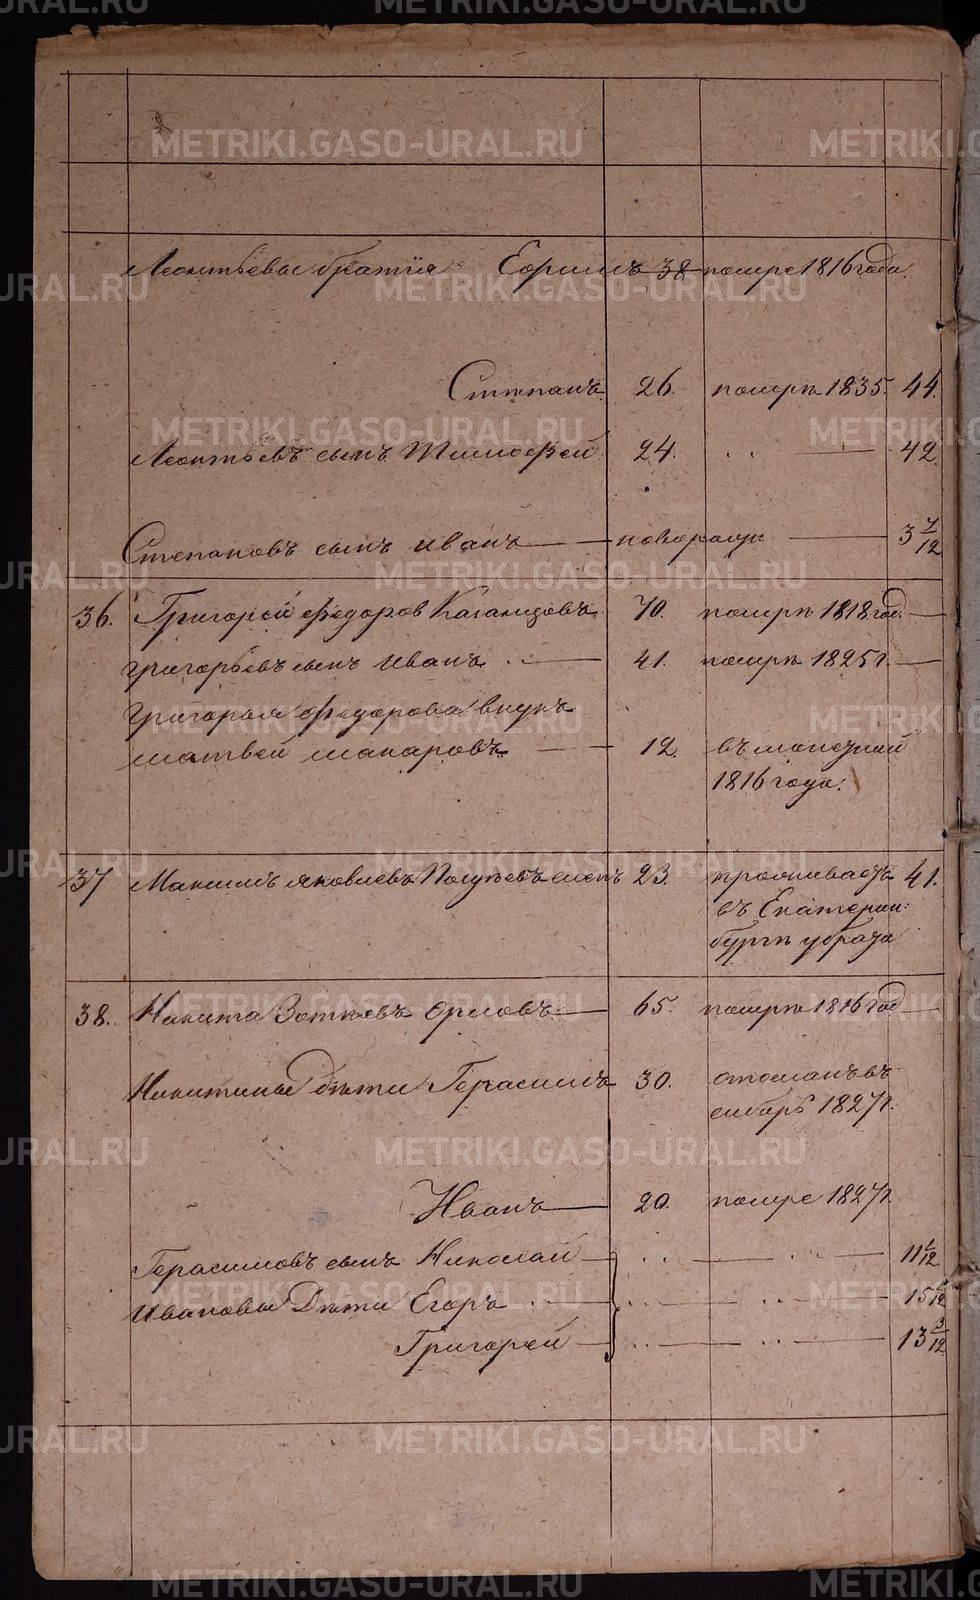 METRIKI.GASO-URAL.RU
Леонтьевы братiя Ефримъ 38 помре 1816 года.
Степанъ 26. помръ 1835. 44.
Леонтьевъ сынъ Тимофей 24. 42.
Степановъ сынъ Иванъ новорожд 3 7/12
36. Григорей Федоров Казанцовъ 70. помръ 1818 год
Григорьевъ сынъ Иванъ 41. помръ 1825 г.
Григорья Федорова внукъ
Матвей Макаровъ 12. въ
1816 года.
37 Максимъ Яковлевъ 23. проживаетъ 41.
въ Екатерин:
бургѣ
38. Никита Зотѣевъ Орловъ 65. помръ 1816 год
Никитины Дѣти Герасимъ 30. отосланъ въ
сибирь 1827 г.
Иванъ 20. помре 1827 г.
Герасимовъ сынъ Николай 11 /12
Ивановы Дѣти Егоръ 15 /12
Григорей 13 3/12